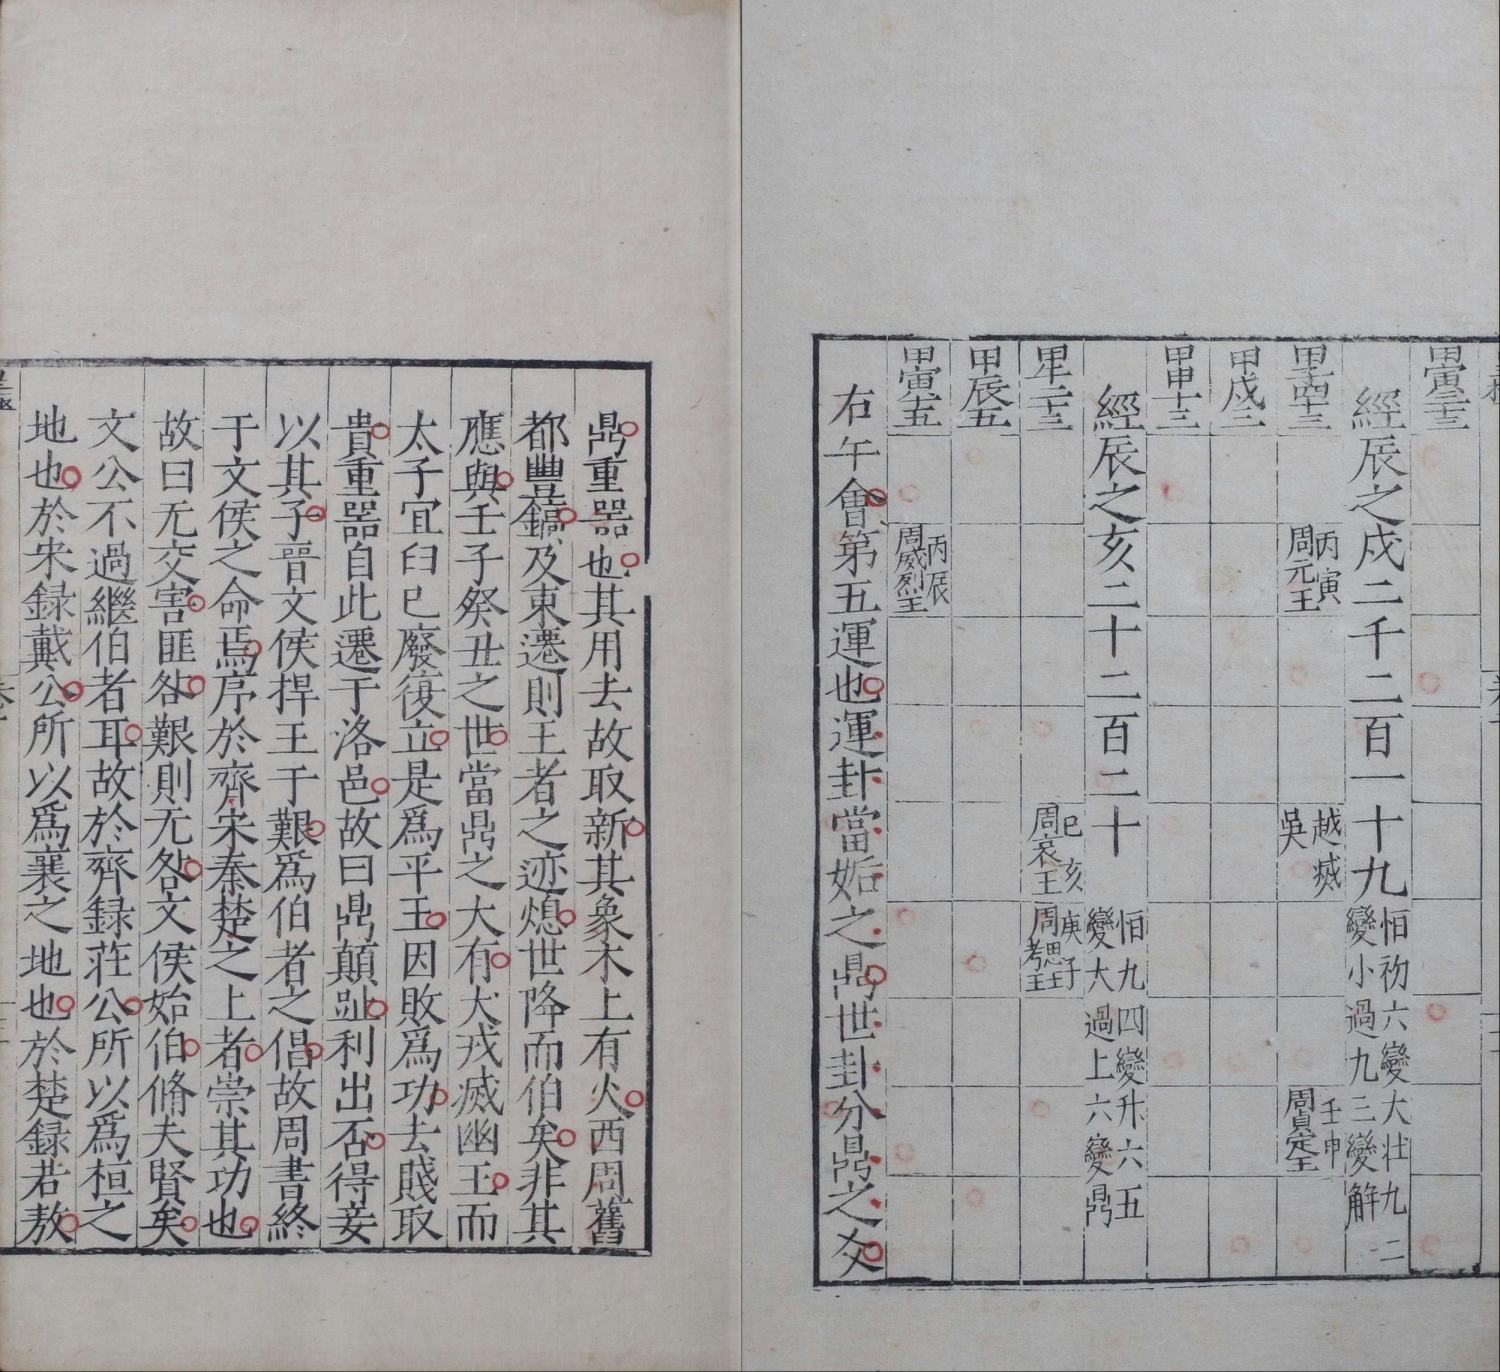 甲寅三十三
經辰之戌二千二百一十九 恒初六變大壯九二
變小過九三變解
甲子四十三 丙寅 周元王 越滅吳 壬申 周貞定王
甲戌三
甲申十三
經辰之亥二十二百二十 恒九四變升六五
變大過上六變鼎
甲午二十三 己亥 周哀王 庚子 周思王 周考王
甲辰五
甲寅六十五 丙辰 周威烈王
右午會第五運也運卦當姤之鼎世卦分鼎之爻
鼎重器也其用去故取新其象木上有火西周舊
都豐鎬及東遷則王者之迹熄世降而伯矣非其
應與壬子癸丑之世當鼎之大有犬戎滅幽王而
太子宜臼已廢復立是為平王因敗為功去賤取
貴重器自此遷于洛邑故曰鼎顛趾利出否得妾
以其子晉文侯捍王于艱為伯者之倡故周書終
于文侯之命焉序於齊宋秦楚之上者崇其功也
故曰无交害匪咎艱則无咎文侯始伯脩夫賢矣
文公不過繼伯者耳故於齊録莊公所以為桓之
地也於宋録戴公所以為襄之地也於楚録若敖